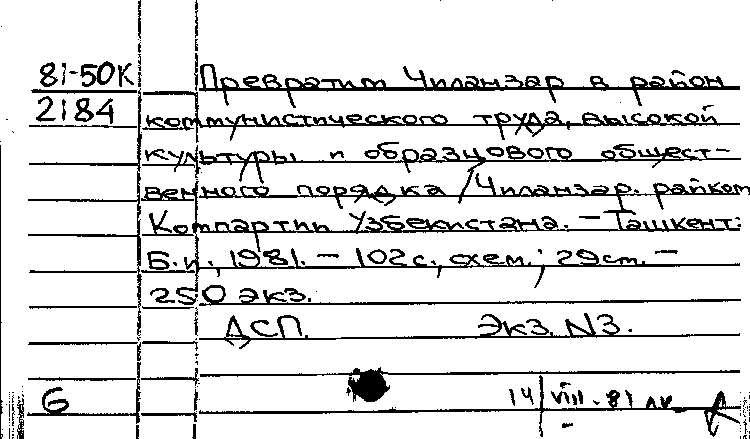 81-50К Превратим Чиланзар в район
2184 коммунистического труда, высокой
культуры и образцового общест-
венного порядка /Чиланзар. райком
Компартии Узбекистана. - Ташкент:
Б.и., 1981. - 102с., схем.; 29см. -
250 экз.
ДСП. Экз. N3.
6 14/VIII-81